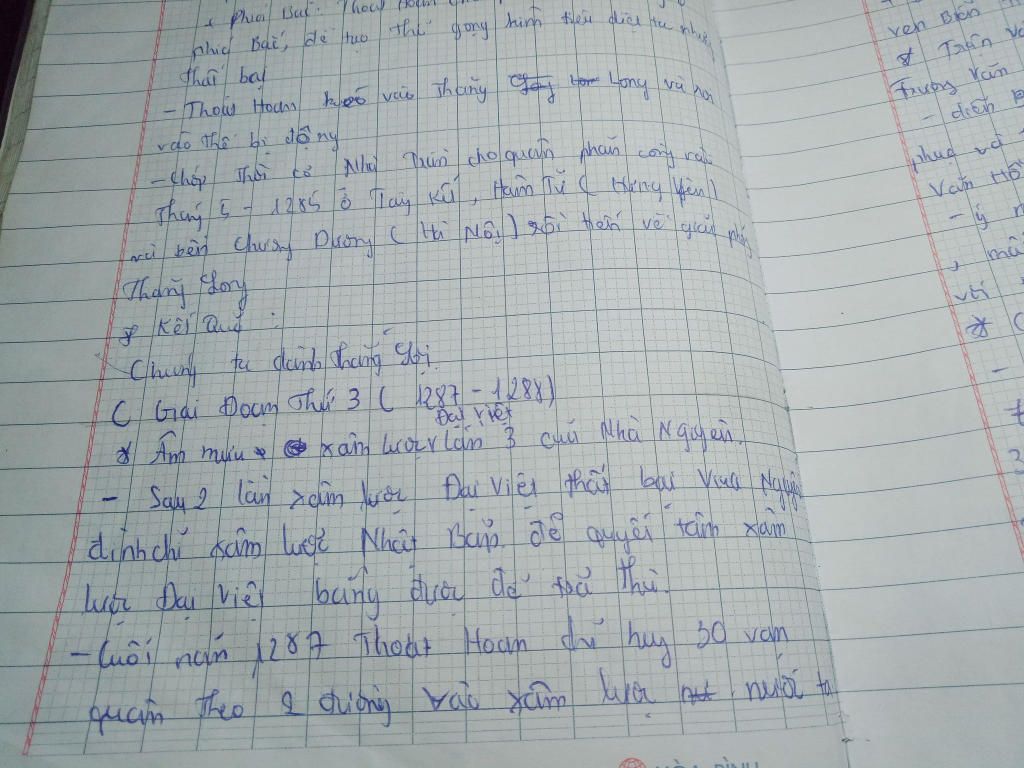 phía Bắc, để tạo thế gọng kìm tiêu diệt ta nhưng
thất bại
- Thoát Hoan vào Thăng Long và rơi
vào thế bị động
- Chớp thời cơ Nhà Trần cho quân phản công vào
Tháng 5 - 1285 ở Tây Kết, Hàm Tử (Hưng Yên)
và bến Chương Dương (Hà Nội) rồi tiến về giải phóng
Thăng Long
* Kết quả :
Chúng ta dành thắng lợi.
C Giai Đoạn Thứ 3 ( 1287 - 1288)
Đại Việt
* Âm mưu xâm lược lần 3 của Nhà Nguyên.
- Sau 2 lần xâm lược Đại Việt thất bại Vua Nguyên
đình chỉ xâm lược Nhật Bản để quyết tâm xâm
lược Đại Việt bằng được để trả thù.
- Cuối năm 1287 Thoát Hoan chỉ huy 30 vạn
quân theo 2 đường vào xâm lược nước ta
ven Biển
* Trần
Trương Văn
- diễn
phục vụ
Vân Đồn
- ý
HÒA BÌNH